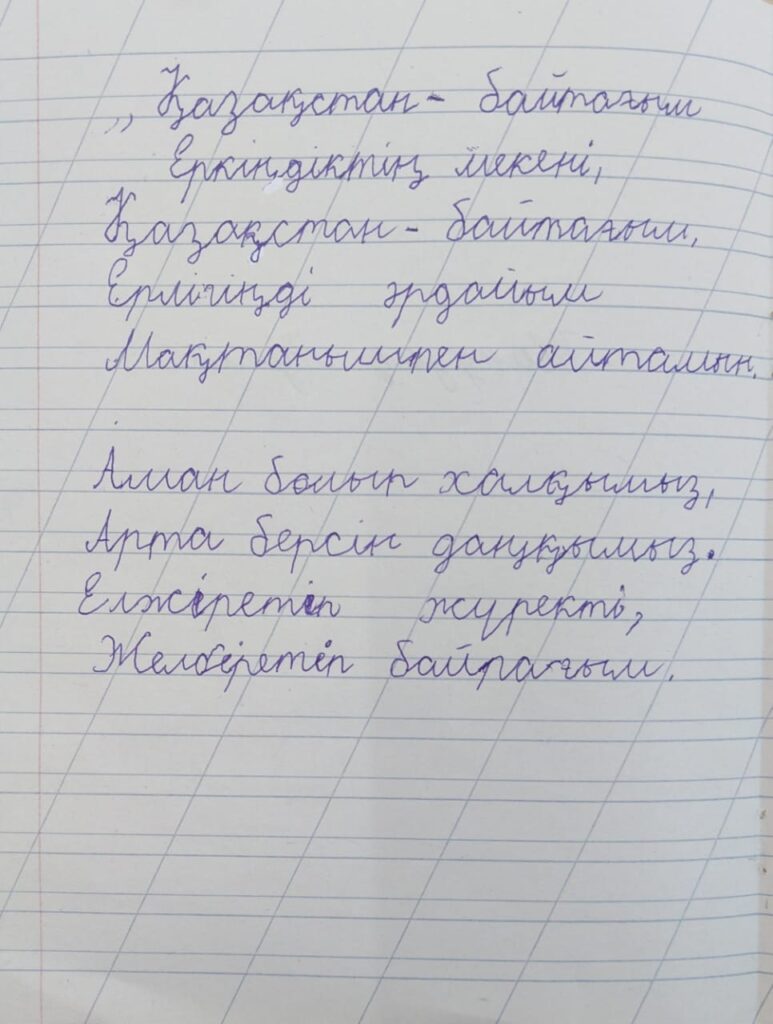 „Қазақстан - байтағым
Еркіңдіктің мекені,
Қазақстан - байтағым,
Ерлігіңді әрдайым
Мақтанышпен айтамын.
Аман болып халқымыз,
Арта берсін даңққымыз.
Елжіретіп жүректі,
Желбіретіп байрағым.